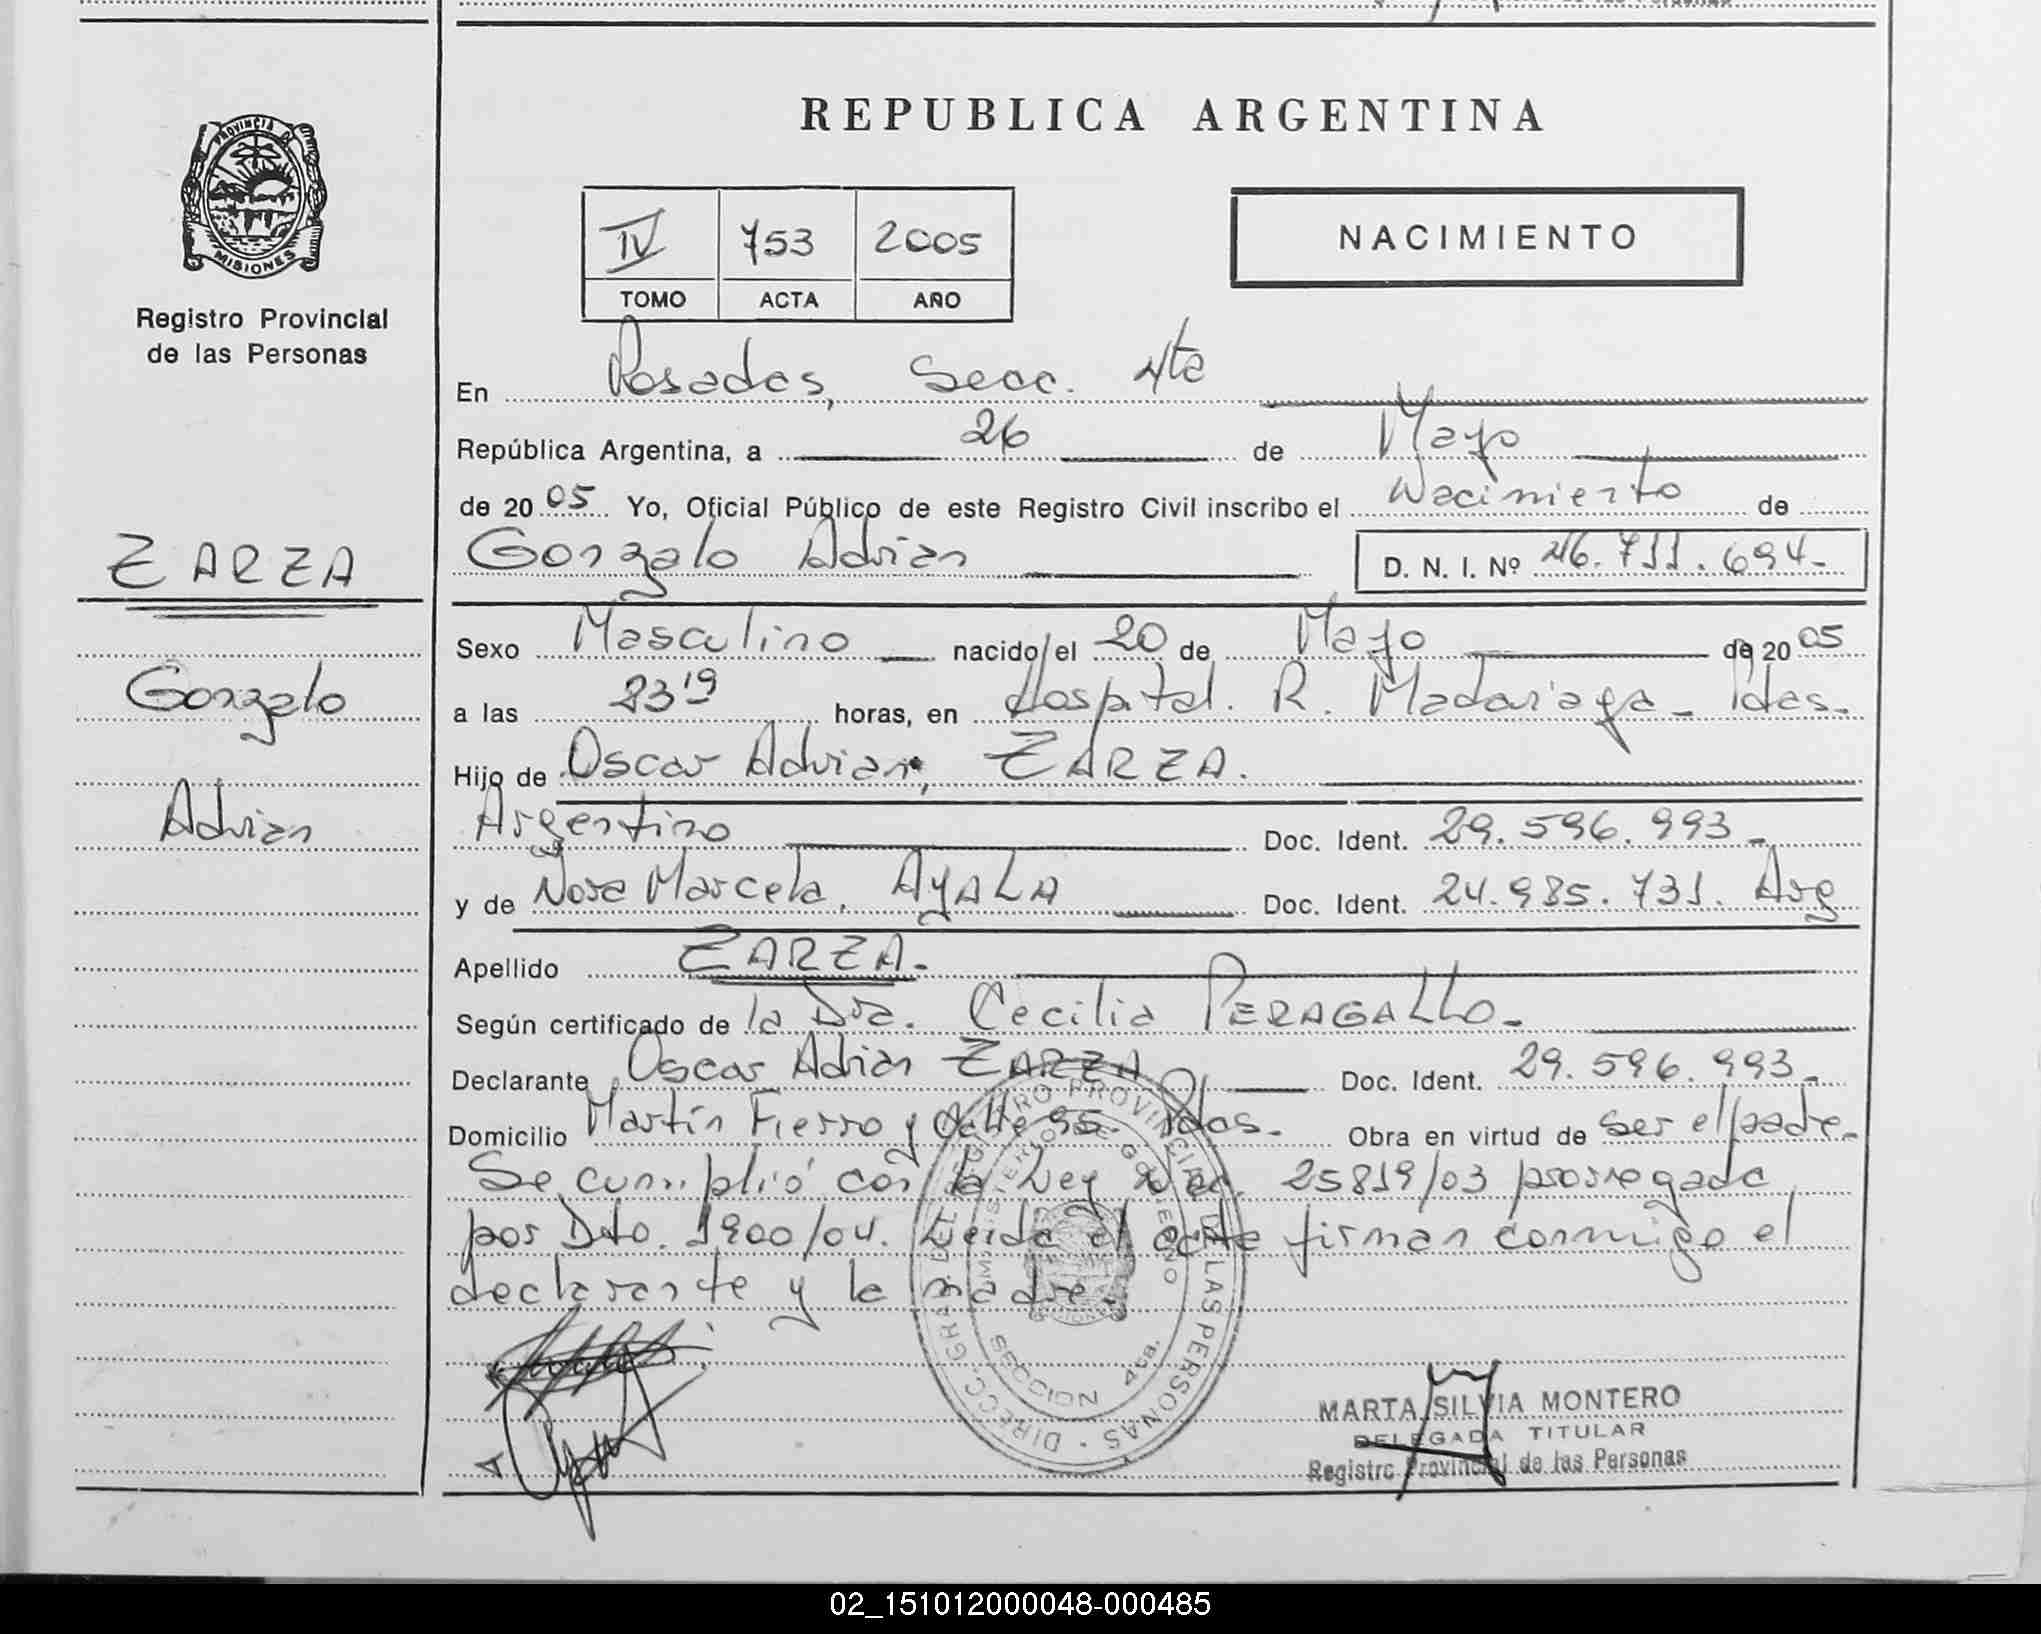 REPUBLICA ARGENTINA
PROVINCIA DE
MISIONES
Registro Provincial
de las Personas
IV 753 2005
TOMO ACTA AÑO
NACIMIENTO
En Posadas, Secc. 4ta
República Argentina, a 26 de Mayo
de 2005 Yo, Oficial Público de este Registro Civil inscribo el Nacimiento de
Gonzalo Adrian D. N. I. Nº 46.711.694-
ZARZA
Gonzalo
Adrian
Sexo Masculino nacido el 20 de Mayo de 2005
a las 23 19 horas, en Hospital. R. Madariaga - Pdas.
Hijo de Oscar Adrian, ZARZA.
Argentino Doc. Ident. 29.596.993-
y de Nora Marcela, AYALA Doc. Ident. 24.985.731. Arg
Apellido ZARZA.
Según certificado de la Dra. Cecilia PERAGALLO.
Declarante Oscar Adrian ZARZA Doc. Ident. 29.596.993-
Domicilio Martín Fierro y Calle 95. Pdas. Obra en virtud de ser el padre.
Se cumplió con la Ley Nac. 25819/03 prorrogada
por Dto. 1900/04. Leida el acta firman conmigo el
declarante y la madre.
DIRECC. GRAL. DEL REGISTRO PROVINCIAL DE LAS PERSONAS
MINISTERIO DE GOBIERNO
SECCION 4ta.
MARTA SILVIA MONTERO
DELEGADA TITULAR
Registro Provincial de las Personas
02_151012000048-000485